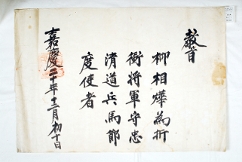 教旨
柳相燁為折
衝將軍守忠
清道兵馬節
度使者
嘉慶二十一年十二月初十日